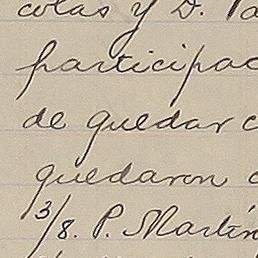 colas y D.
participac
de quedar c
quedaron
3/8. P. Martín